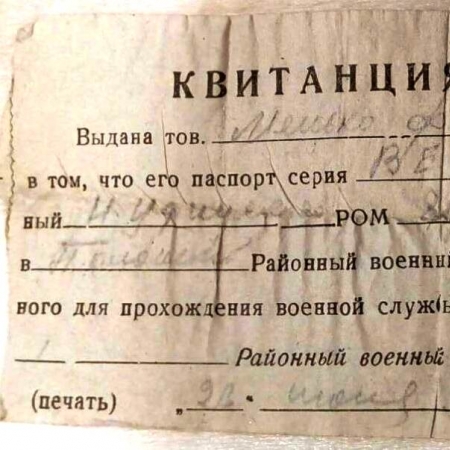 КВИТАНЦИЯ
Выдана тов. Мешко
в том, что его паспорт серия ВЕ
ный РОМ
в Районный военный
ного для прохождения военной служ
1 Районный военный
(печать) „23" июня